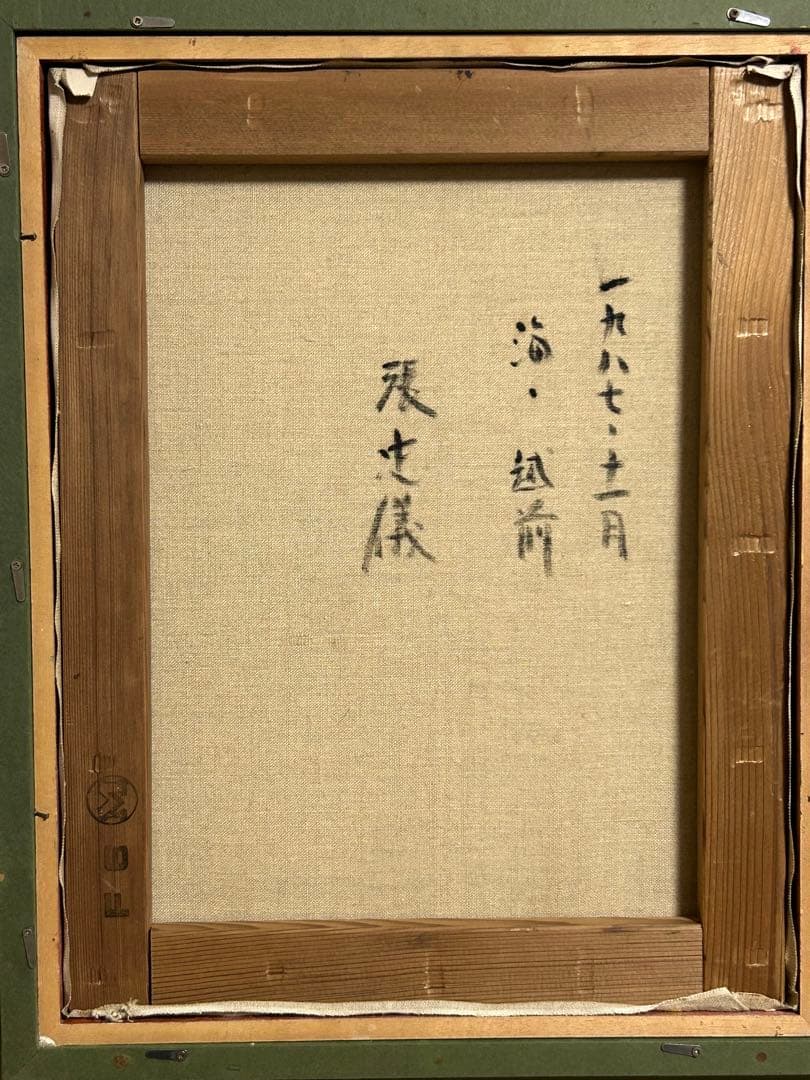 一九八七・十一月
海・越前
張忠儀
F6